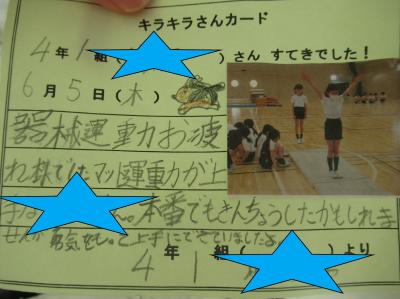 キラキラさんカード
4年1組( )さん すてきでした!
6月5日(木)
器械運重力お疲
れ様でしたマット運重力が上
手な さん。本番でもきんちょうしたかもしれま
せんが 勇気をもって上手にできていましたよ
4年1組( )より